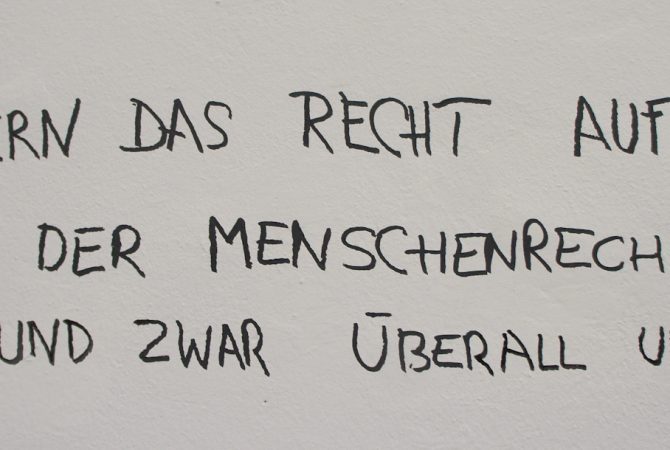 ERN DAS RECHT AUF
DER MENSCHENRECH
UND ZWAR ÜBERALL U